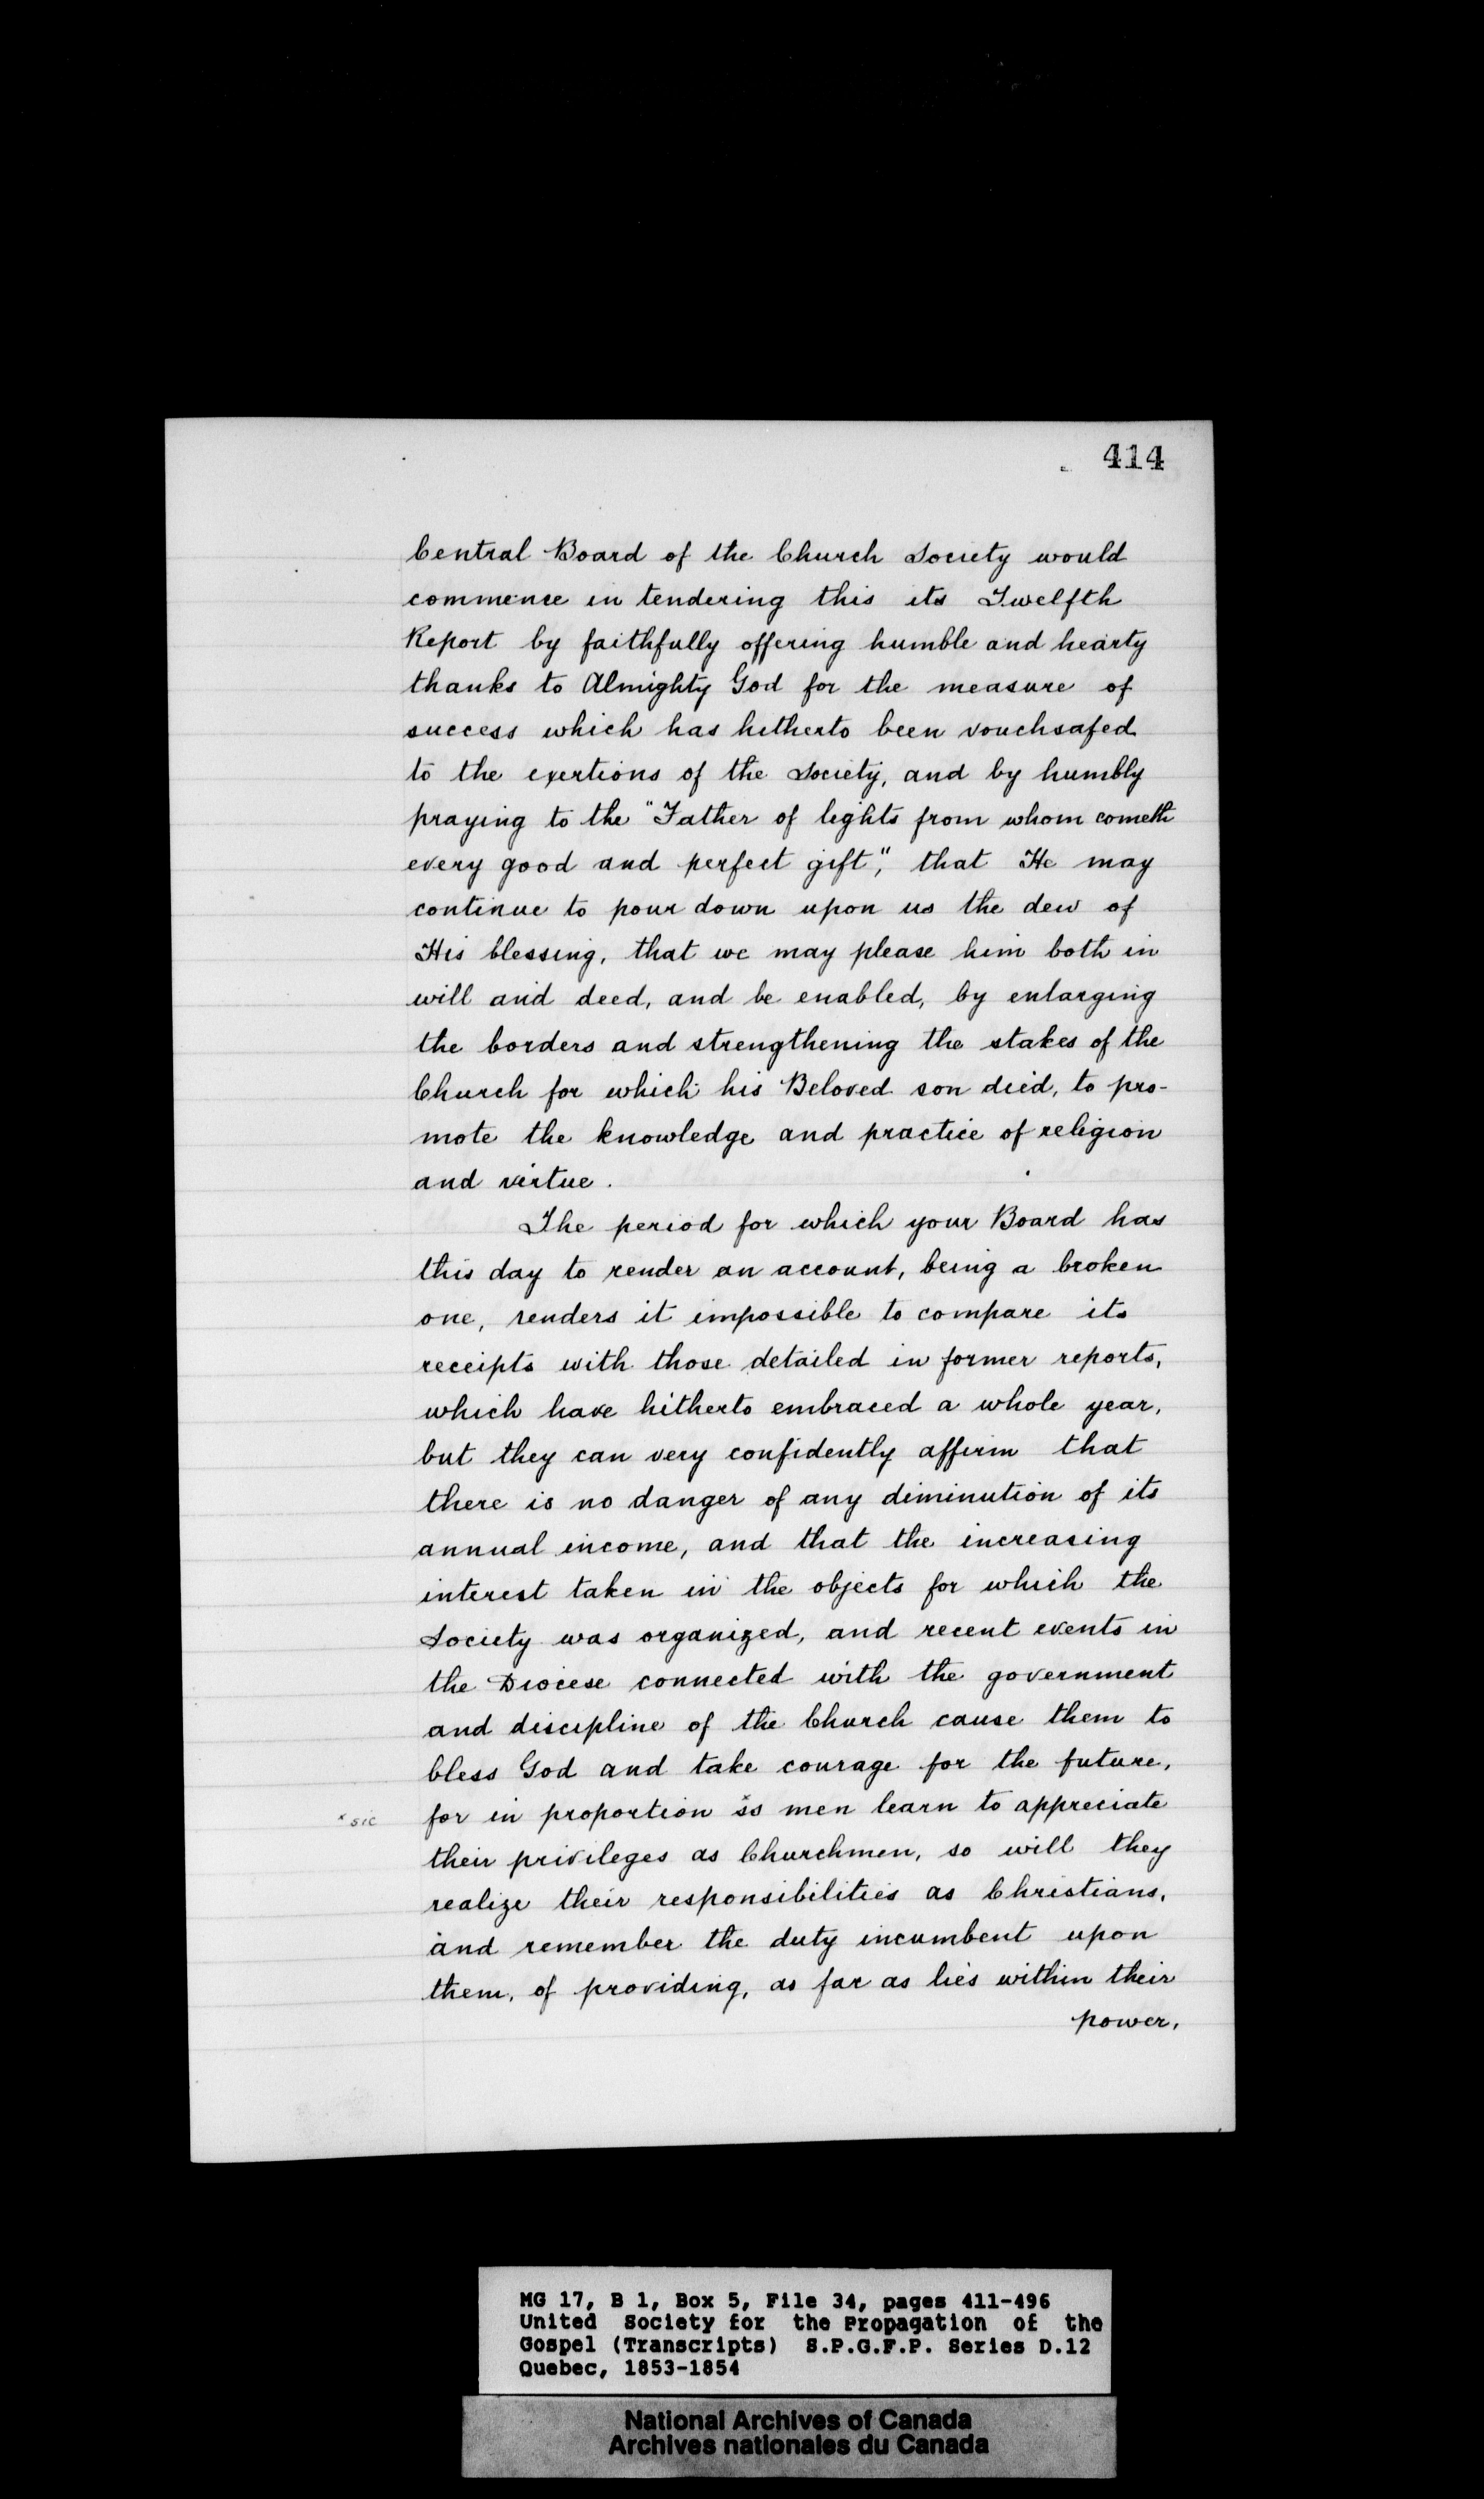 414
Central Board of the Church Society would
commence in tendering this its Twelfth
Report by faithfully offering humble and hearty
thanks to Almighty God for the measure of
success which has hitherto been vouchsafed
to the exertions of the Society, and by humbly
praying to the "Father of lights from whom cometh
every good and perfect gift", that He may
continue to pour down upon us the dew of
His blessing, that we may please him both in
will and deed, and be enabled, by enlarging
the borders and strengthening the stakes of the
Church for which his Beloved son died, to pro-
mote the knowledge and practice of religion
and virtue.
The period for which your Board has
this day to render an account, being a broken
one, renders it impossible to compare its
receipts with those detailed in former reports,
which have hitherto embraced a whole year,
but they can very confidently affirm that
there is no danger of any diminution of its
annual income, and that the increasing
interest taken in the objects for which the
Society was organized, and recent events in
the Diocese connected with the government
and discipline of the Church cause them to
bless God and take courage for the future,
x sic for in proportion ss men learn to appreciate
their privileges as Churchmen, so will they
realize their responsibilities as Christians,
and remember the duty incumbent upon
them, of providing, as far as lies within their
power,
MG 17, B 1, Box 5, File 34, pages 411-496
United Society for the Propagation of the
Gospel (Transcripts) S.P.G.F.P. Series D.12
Quebec, 1853-1854
National Archives of Canada
Archives nationales du Canada